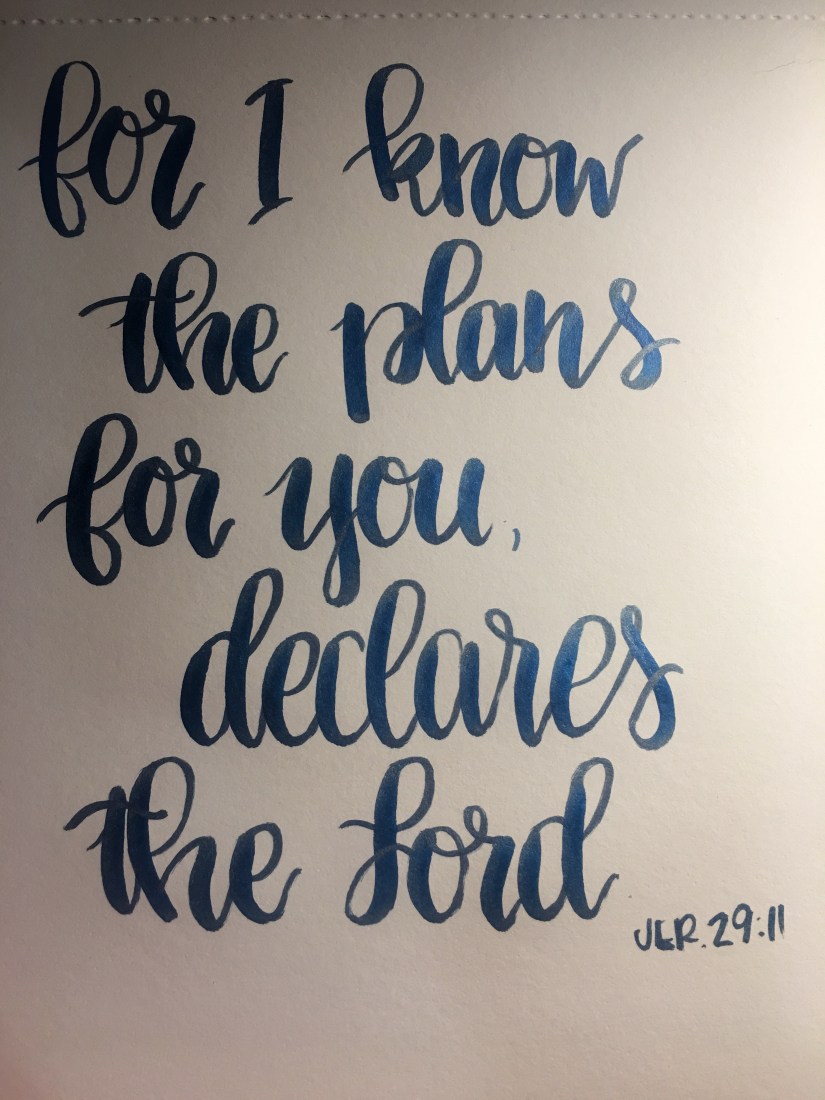 for I know
the plans
for you,
declares
the Lord
JER. 29:11